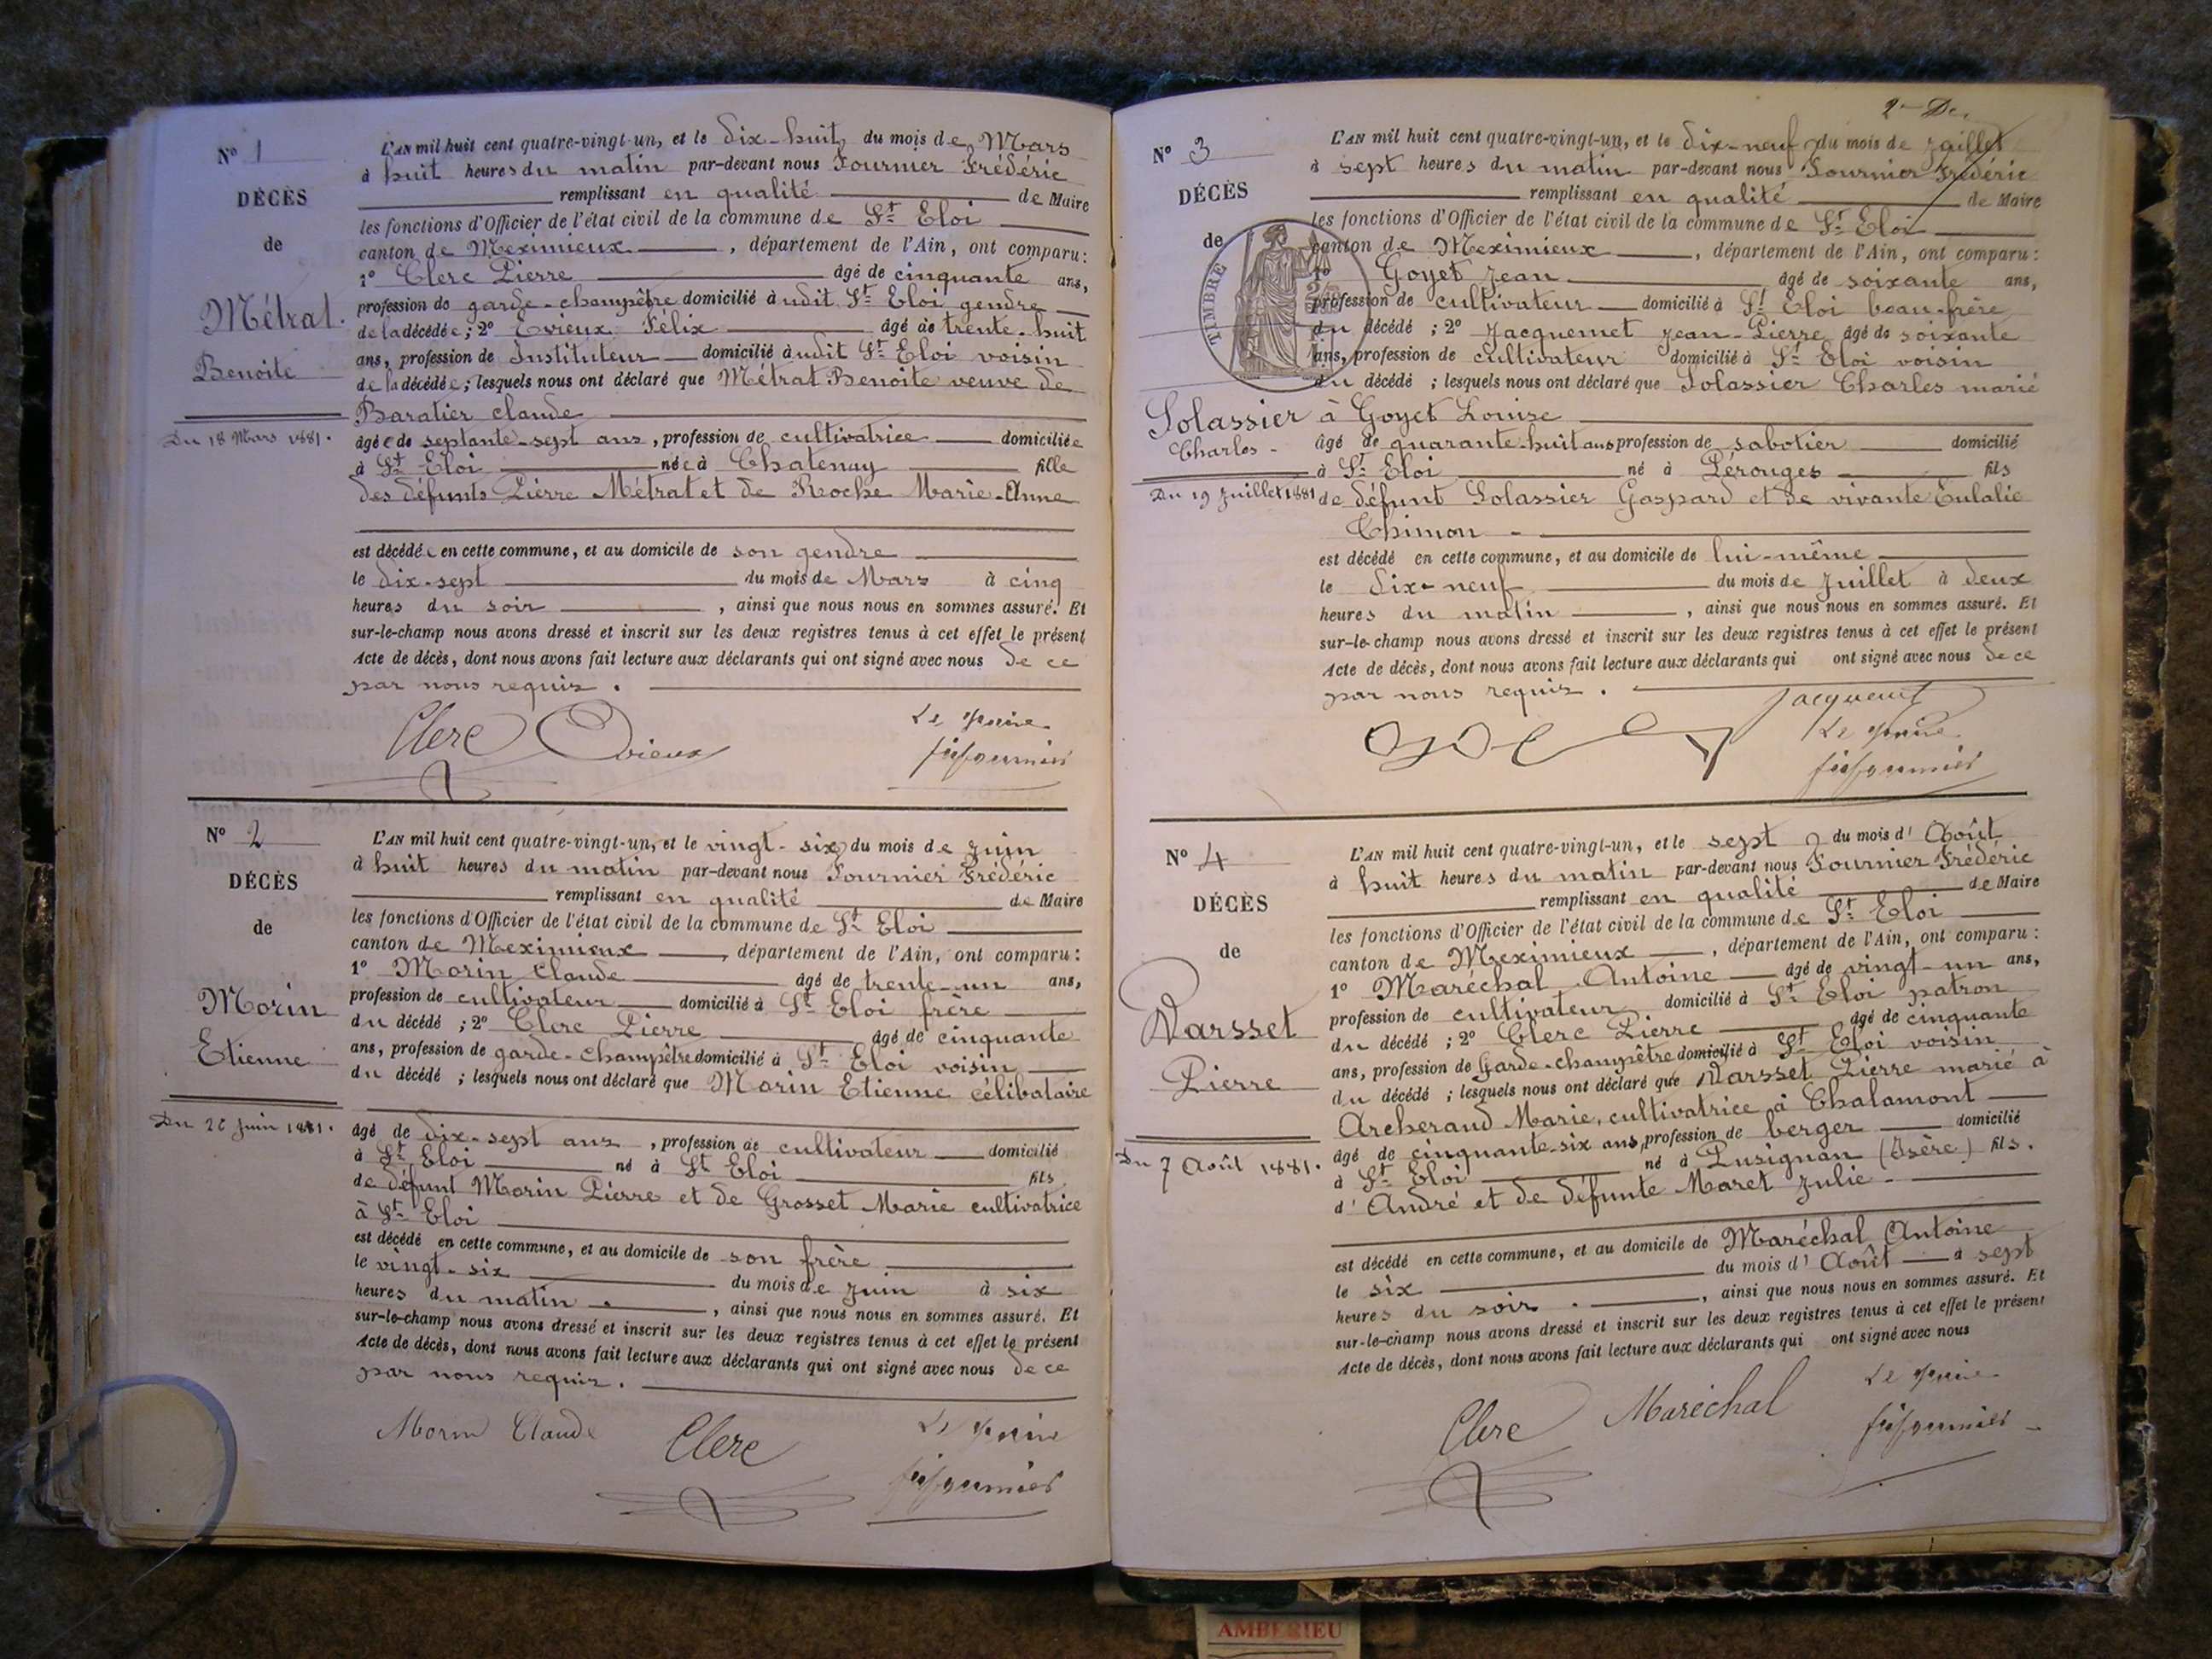 N° 1
DÉCÈS
de
Métrat
Benoite
Du 18 Mars 1881.
L'AN mil huit cent quatre-vingt-un, et le dix-huit du mois de Mars
à huit heures du matin par-devant nous Fournier Frédéric
remplissant en qualité de Maire
les fonctions d'Officier de l'état civil de la commune de St Eloi
canton de Meximieux, département de l'Ain, ont comparu:
1° Clerc Pierre âgé de cinquante ans,
profession de garde-champêtre domicilié à udit St Eloi gendre
de la décédée; 2° Evieux Félix âgé de trente-huit
ans, profession de Instituteur domicilié à udit St Eloi voisin
de la décédée; lesquels nous ont déclaré que Métrat Benoite veuve de
Baratier Claude
âgée de septante-sept ans, profession de cultivatrice domiciliée
à St Eloi née à Chatenay fille
des défunts Pierre Métrat et de Roche Marie-Anne
est décédée en cette commune, et au domicile de son gendre
le dix-sept du mois de Mars à cinq
heures du soir, ainsi que nous nous en sommes assuré. Et
sur-le-champ nous avons dressé et inscrit sur les deux registres tenus à cet effet le présent
Acte de décès, dont nous avons fait lecture aux déclarants qui ont signé avec nous de ce
par nous requis.
Clerc Evieux Le Maire
Fournier
N° 2
DÉCÈS
de
Morin
Etienne
Du 26 Juin 1881.
L'AN mil huit cent quatre-vingt-un, et le vingt-six du mois de Juin
à huit heures du matin par-devant nous Fournier Frédéric
remplissant en qualité de Maire
les fonctions d'Officier de l'état civil de la commune de St Eloi
canton de Meximieux, département de l'Ain, ont comparu:
1° Morin Claude âgé de trente-un ans,
profession de cultivateur domicilié à St Eloi frère
du décédé; 2° Clerc Pierre âgé de cinquante
ans, profession de garde-champêtre domicilié à St Eloi voisin
du décédé; lesquels nous ont déclaré que Morin Etienne célibataire
âgé de dix-sept ans, profession de cultivateur domicilié
à St Eloi né à St Eloi fils
de défunt Morin Pierre et de Grosset Marie cultivatrice
à St Eloi
est décédé en cette commune, et au domicile de son frère
le vingt-six du mois de Juin à six
heures du matin, ainsi que nous nous en sommes assuré. Et
sur-le-champ nous avons dressé et inscrit sur les deux registres tenus à cet effet le présent
Acte de décès, dont nous avons fait lecture aux déclarants qui ont signé avec nous de ce
par nous requis.
Morin Claude Clerc Le Maire
Fournier
N° 3
DÉCÈS
de
TIMBRE
Solassier
Charles
Du 19 Juillet 1881
L'AN mil huit cent quatre-vingt-un, et le dix-neuf du mois de Juillet
à sept heures du matin par-devant nous Fournier Frédéric
remplissant en qualité de Maire
les fonctions d'Officier de l'état civil de la commune de St Eloi
canton de Meximieux, département de l'Ain, ont comparu:
1° Goyet Jean âgé de soixante ans,
profession de cultivateur domicilié à St Eloi beau-frère
du décédé; 2° Jacquemet Jean-Pierre âgé de soixante
ans, profession de cultivateur domicilié à St Eloi voisin
du décédé; lesquels nous ont déclaré que Solassier Charles marié
à Goyet Louise
âgé de quarante-huit ans profession de sabotier domicilié
à St Eloi né à Pérouges fils
de défunt Solassier Gaspard et de vivante Eulalie
Chimon
est décédé en cette commune, et au domicile de lui-même
le dix-neuf du mois de Juillet à deux
heures du matin, ainsi que nous nous en sommes assuré. Et
sur-le-champ nous avons dressé et inscrit sur les deux registres tenus à cet effet le présent
Acte de décès, dont nous avons fait lecture aux déclarants qui ont signé avec nous de ce
par nous requis.
Jacquemet
Le Maire
Fournier
N° 4
DÉCÈS
de
Varsset
Pierre
Du 7 Août 1881.
L'AN mil huit cent quatre-vingt-un, et le sept du mois d'Août
à huit heures du matin par-devant nous Fournier Frédéric
remplissant en qualité de Maire
les fonctions d'Officier de l'état civil de la commune de St Eloi
canton de Meximieux, département de l'Ain, ont comparu:
1° Maréchal Antoine âgé de vingt-un ans,
profession de cultivateur domicilié à St Eloi patron
du décédé; 2° Clerc Pierre âgé de cinquante
ans, profession de Garde-champêtre domicilié à St Eloi voisin
du décédé; lesquels nous ont déclaré que Varsset Pierre marié à
Archeraud Marie, cultivatrice à Chalamont
âgé de cinquante-six ans, profession de berger domicilié
à St Eloi né à Pusignan (Isère) fils.
d'André et de défunte Maret Julie
est décédé en cette commune, et au domicile de Maréchal Antoine
le six du mois d'Août à sept
heures du soir, ainsi que nous nous en sommes assuré. Et
sur-le-champ nous avons dressé et inscrit sur les deux registres tenus à cet effet le présent
Acte de décès, dont nous avons fait lecture aux déclarants qui ont signé avec nous
Clerc Maréchal Le Maire
Fournier
AMBERIEU